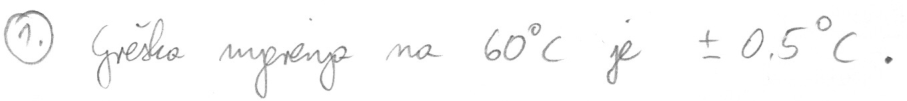 1. Greška mjerenja na 60°C je ± 0.5°C.